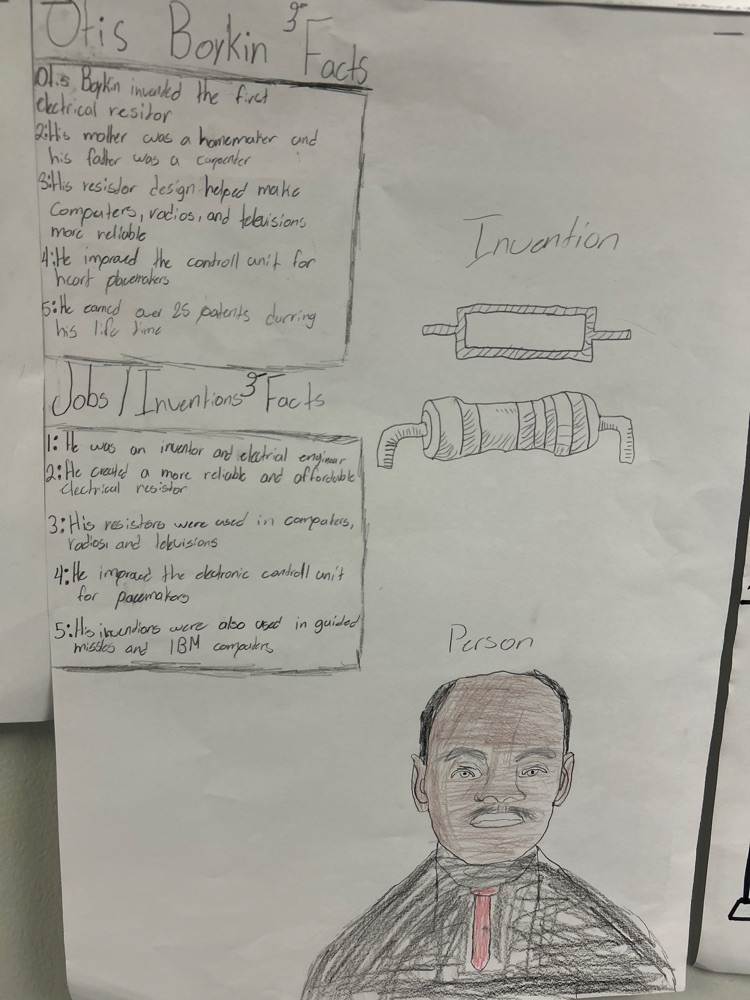 Otis Boykin 3 Facts
Otis Boykin invented the first
electrical resitor
2: His mother was a homemaker and
his father was a carpenter
3: His resistor design helped make
computers, radios, and televisions
more reliable
4: He improved the controll unit for
heart pacemakers
5: He earned over 25 patents durring
his life time
Jobs / Inventions 3 Facts
1: He was an inventor and electrial engineer
2: He created a more reliable and affordable
electrical resistor
3: His resistors were used in computers,
radios, and televisions
4: He improved the electronic controll unit
for pacemakers
5: His inventions were also used in guided
missles and IBM computers
Invention
Person